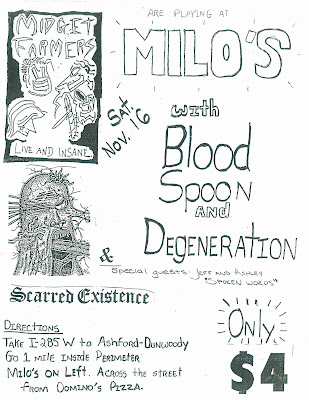 MIDGET
FARMERS
LIVE AND INSANE
ARE PLAYING AT
MILO'S
SAT.
NOV. 16
with
Blood
Spoon
AND
Degeneration
&
Special guests Jeff and Ashley
"Spoken Words"
Scarred Existence
Directions
Take I-285 W to Ashford-Dunwoody
Go 1 mile inside Perimeter
Milo's on Left. Across the street
from Domino's Pizza.
Only
$4